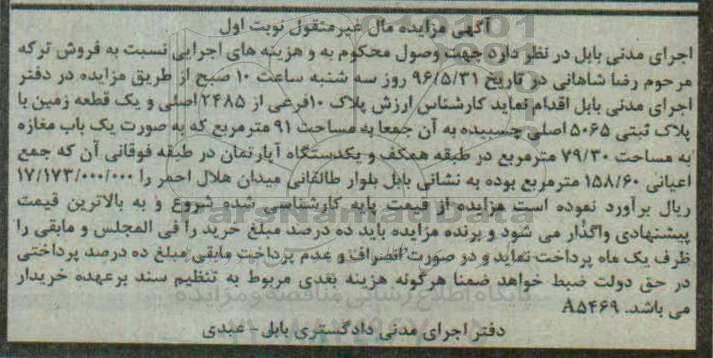 آگهی مزایده مال غیرمنقول نوبت اول
اجرای مدنی بابل در نظر دارد جهت وصول محکوم به و هزینه های اجرایی نسبت به فروش ترکه
مرحوم رضا شاهانی در تاریخ ۹۶/۵/۳۱ روز سه شنبه ساعت ۱۰ صبح از طریق مزایده در دفتر
اجرای مدنی بابل اقدام نماید کارشناس ارزش پلاک ۱۰فرعی از ۲۴۸۵ اصلی و یک قطعه زمین با
پلاک ثبتی ۵۰۶۵ اصلی چسبیده به آن جمعا به مساحت ۹۱ مترمربع که به صورت یک باب مغازه
به مساحت ۷۹/۳۰ مترمربع در طبقه همکف و یکدستگاه آپارتمان در طبقه فوقانی آن که جمع
اعیانی ۱۵۸/۶۰ مترمربع بوده به نشانی بابل بلوار طالقانی میدان هلال احمر را ۱۷/۱۷۳/۰۰۰/۰۰۰
ریال برآورد نموده است مزایده از قیمت پایه کارشناسی شده شروع و به بالاترین قیمت
پیشنهادی واگذار می شود و برنده مزایده باید ده درصد مبلغ خرید را فی المجلس و مابقی را
ظرف یک ماه پرداخت نماید و در صورت انصراف و عدم پرداخت مابقی مبلغ ده درصد پرداختی
در حق دولت ضبط خواهد ضمنا هرگونه هزینه بعدی مربوط به تنظیم سند برعهده خریدار
می باشد. A۵۴۶۹
دفتر اجرای مدنی دادگستری بابل - عبدی
ParsNamadData
پایگاه اطلاع رسانی مناقصه و مزایده